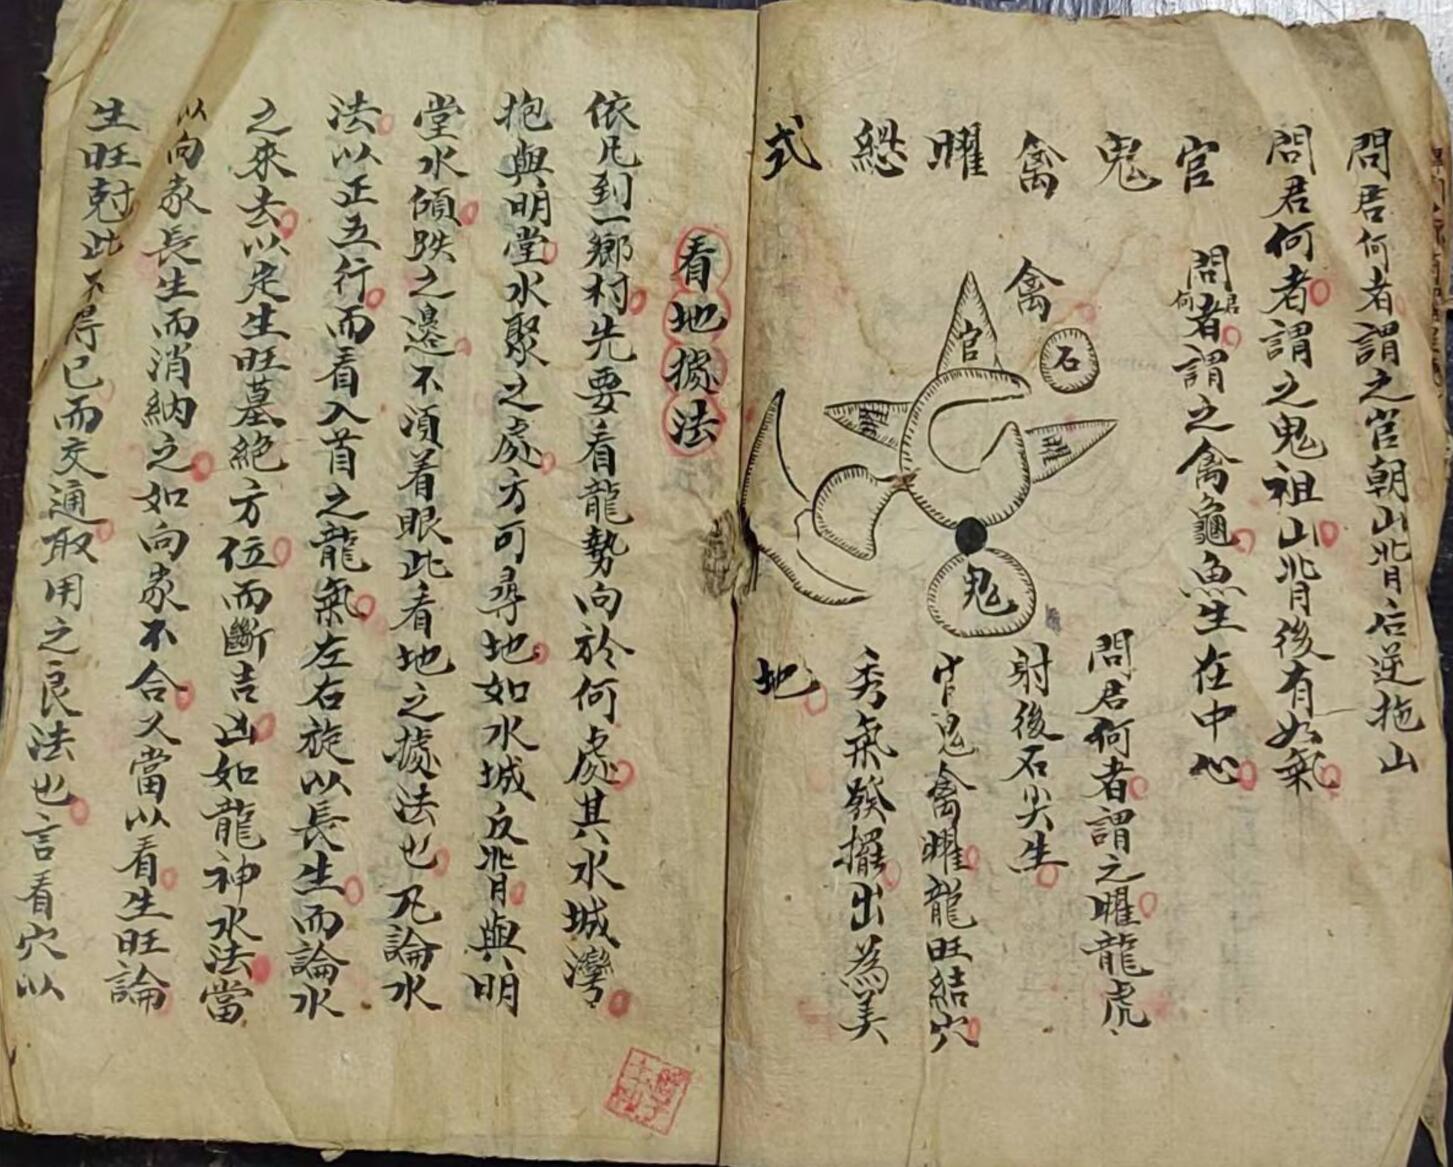 問君何者謂之官朝山背后逆拖山
問君何者謂之鬼祖山背後有如氣
官鬼禽曜総式
問君何者謂之禽龜魚生在中心
問君何者謂之曜龍虎
射後石尖生
官鬼禽曜龍旺結穴
秀氣發擺出為美
地
禽
石
官
曜
曜
鬼
看地據法
依凡到一鄉村先要看龍勢向於何處其水城灣
抱與明堂水聚之處方可尋地如水城反背與明
堂水傾跌之邊不須着眼此看地之據法也凡論水
法以正五行而看入首之龍氣左右旋以長生而論水
之來去以定生旺墓絶方位而斷吉凶如龍神水法當
以向家長生而消納之如向家不合又當以看生旺論
生旺尅此不得已而交通取用之良法也言看穴以